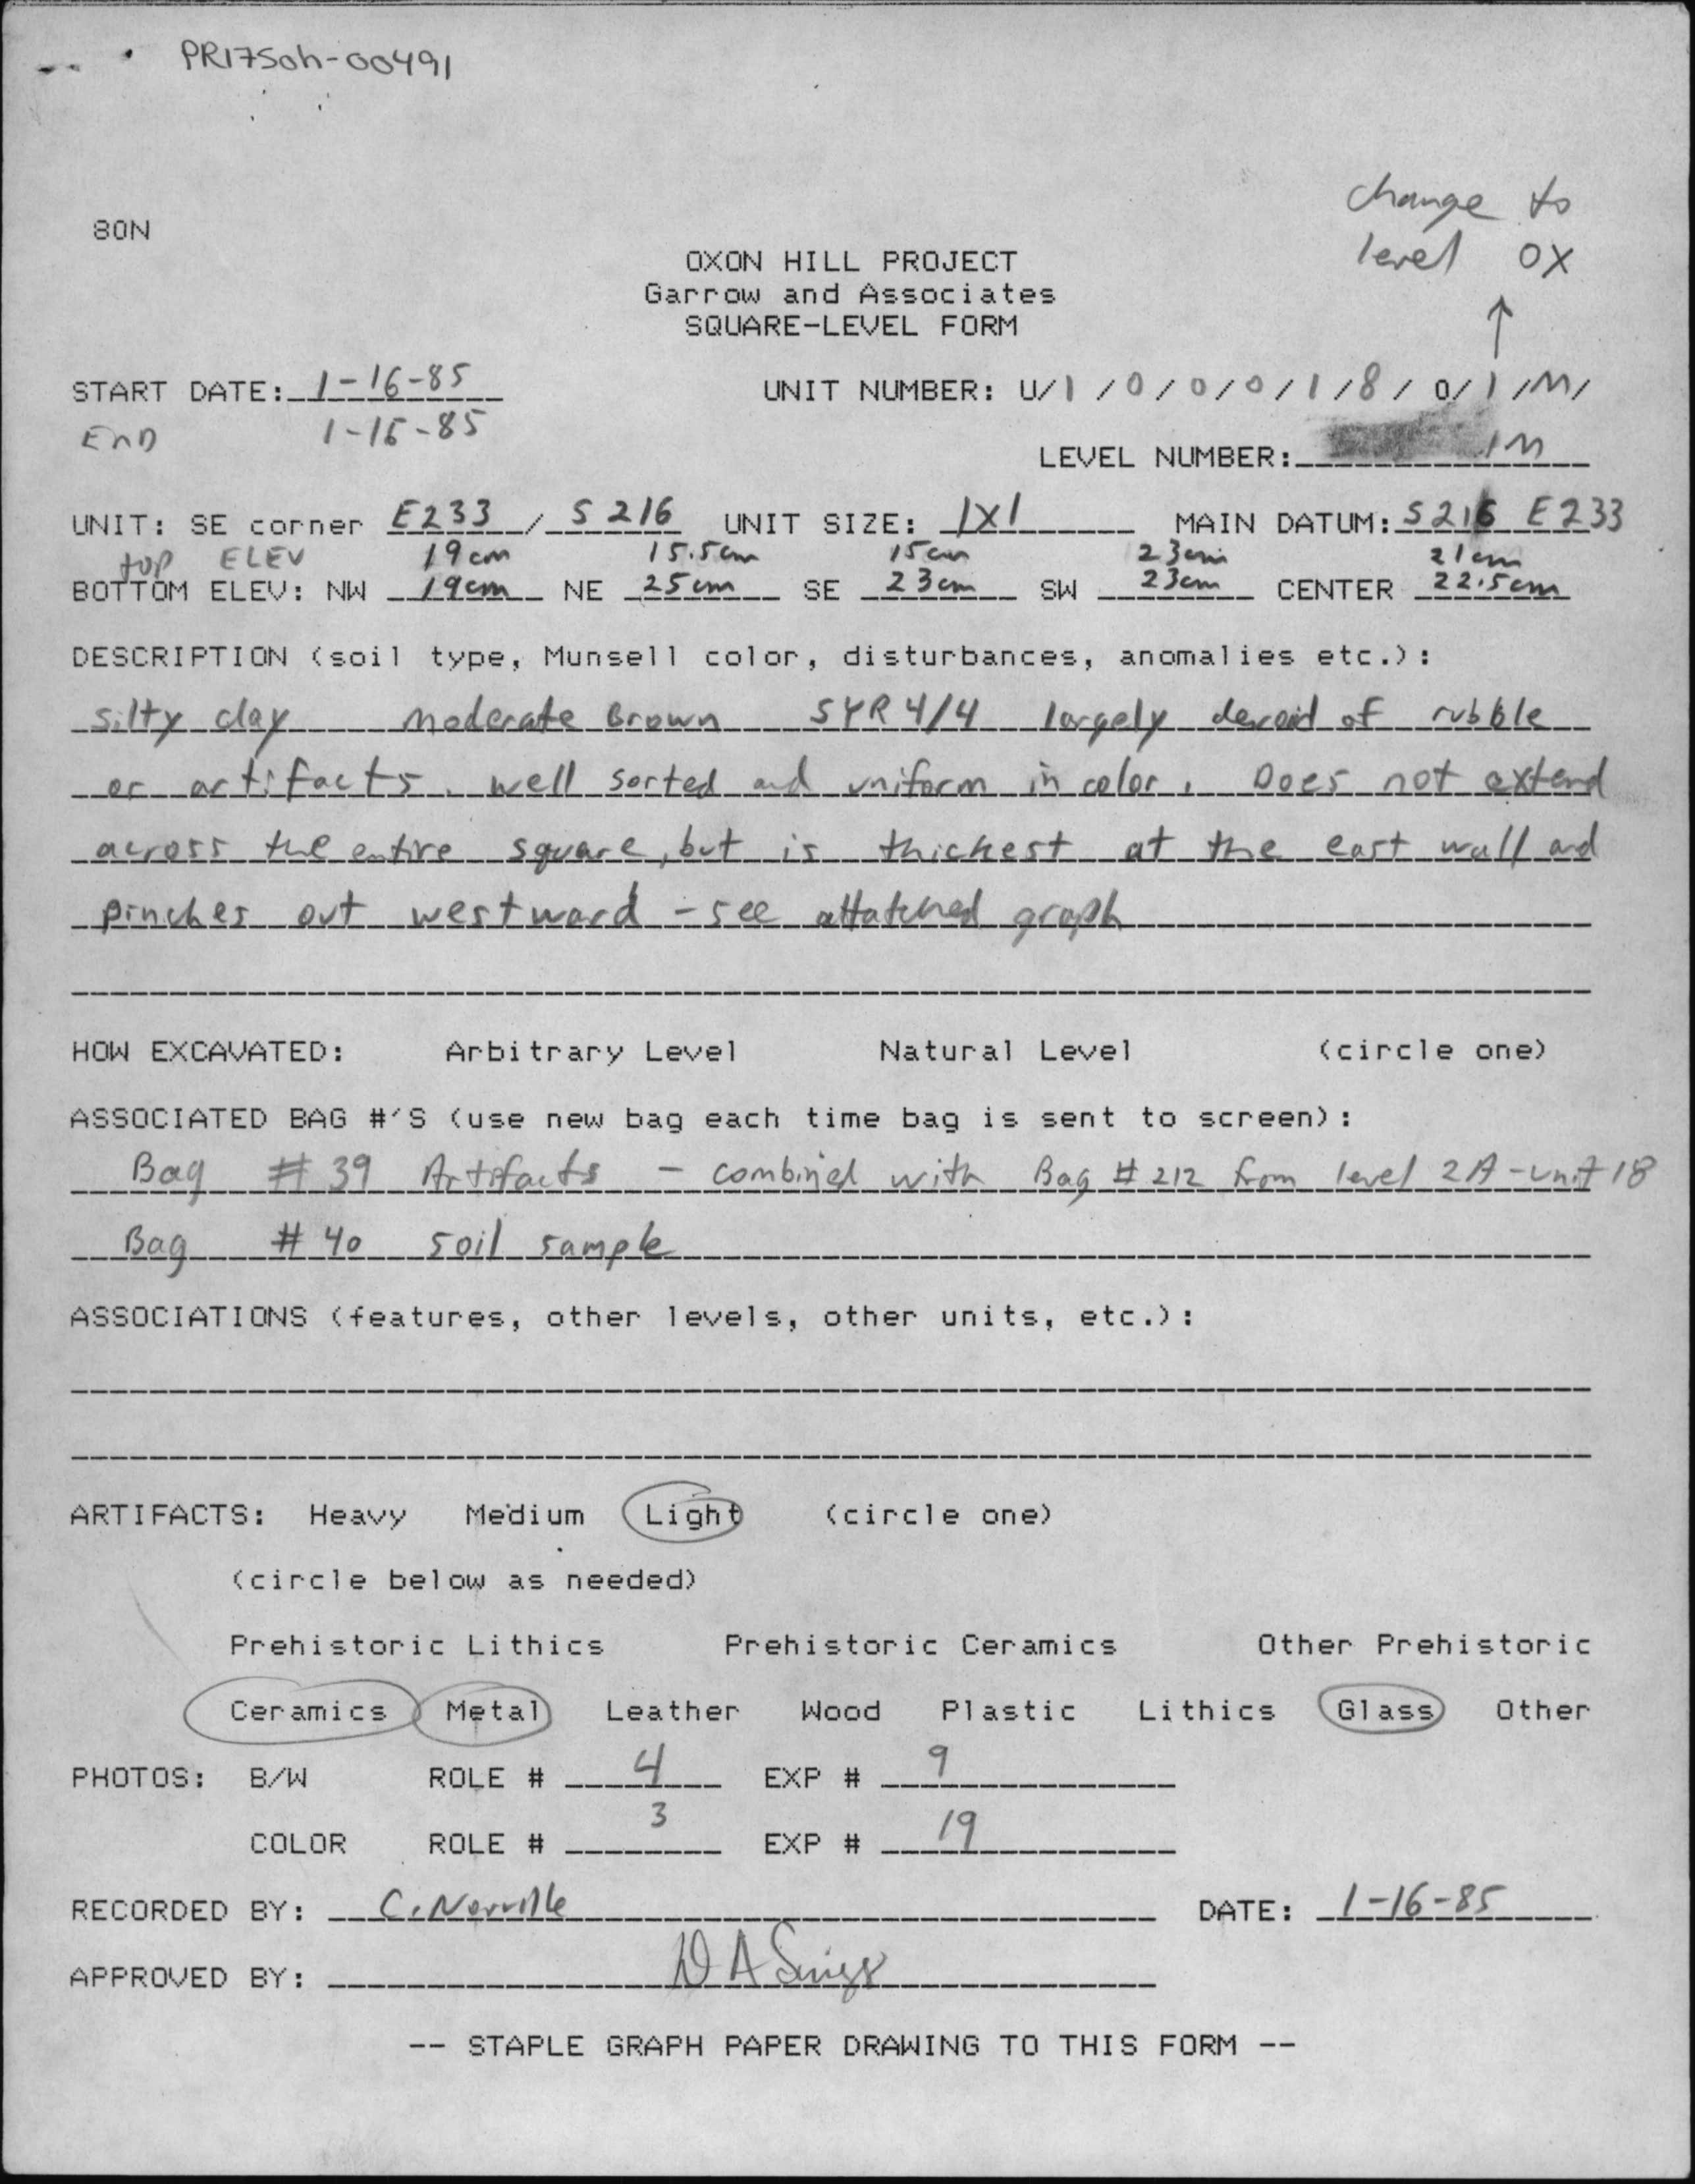 PR175oh-00491
change to
80N
level OX
OXON HILL PROJECT
Garrow and Associates
SQUARE-LEVEL FORM
↑
START DATE: 1-16-85 UNIT NUMBER: U/1/0/0/0/1/8/0/1/M/
END 1-16-85
LEVEL NUMBER: 1M
UNIT: SE corner E233 / S216 UNIT SIZE: 1X1 MAIN DATUM: S216 E233
top ELEV 19cm 15.5cm 15cm 23cm 21cm
BOTTOM ELEV: NW 19cm NE 25cm SE 23cm SW 23cm CENTER 22.5cm
DESCRIPTION (soil type, Munsell color, disturbances, anomalies etc.):
silty clay moderate Brown 5YR 4/4 largely devoid of rubble
or artifacts. well sorted and uniform in color. Does not extend
across the entire square, but is thickest at the east wall and
pinches out westward - see attatched graph
HOW EXCAVATED: Arbitrary Level Natural Level (circle one)
ASSOCIATED BAG #'S (use new bag each time bag is sent to screen):
Bag # 39 Artifacts - combined with Bag # 212 from level 2A - unit 18
Bag # 40 soil sample
ASSOCIATIONS (features, other levels, other units, etc.):
ARTIFACTS: Heavy Medium Light (circle one)
(circle below as needed)
Prehistoric Lithics Prehistoric Ceramics Other Prehistoric
Ceramics Metal Leather Wood Plastic Lithics Glass Other
PHOTOS: B/W ROLE # 4 EXP # 9
COLOR ROLE # 3 EXP # 19
RECORDED BY: C. Norville DATE: 1-16-85
APPROVED BY: D A
-- STAPLE GRAPH PAPER DRAWING TO THIS FORM --